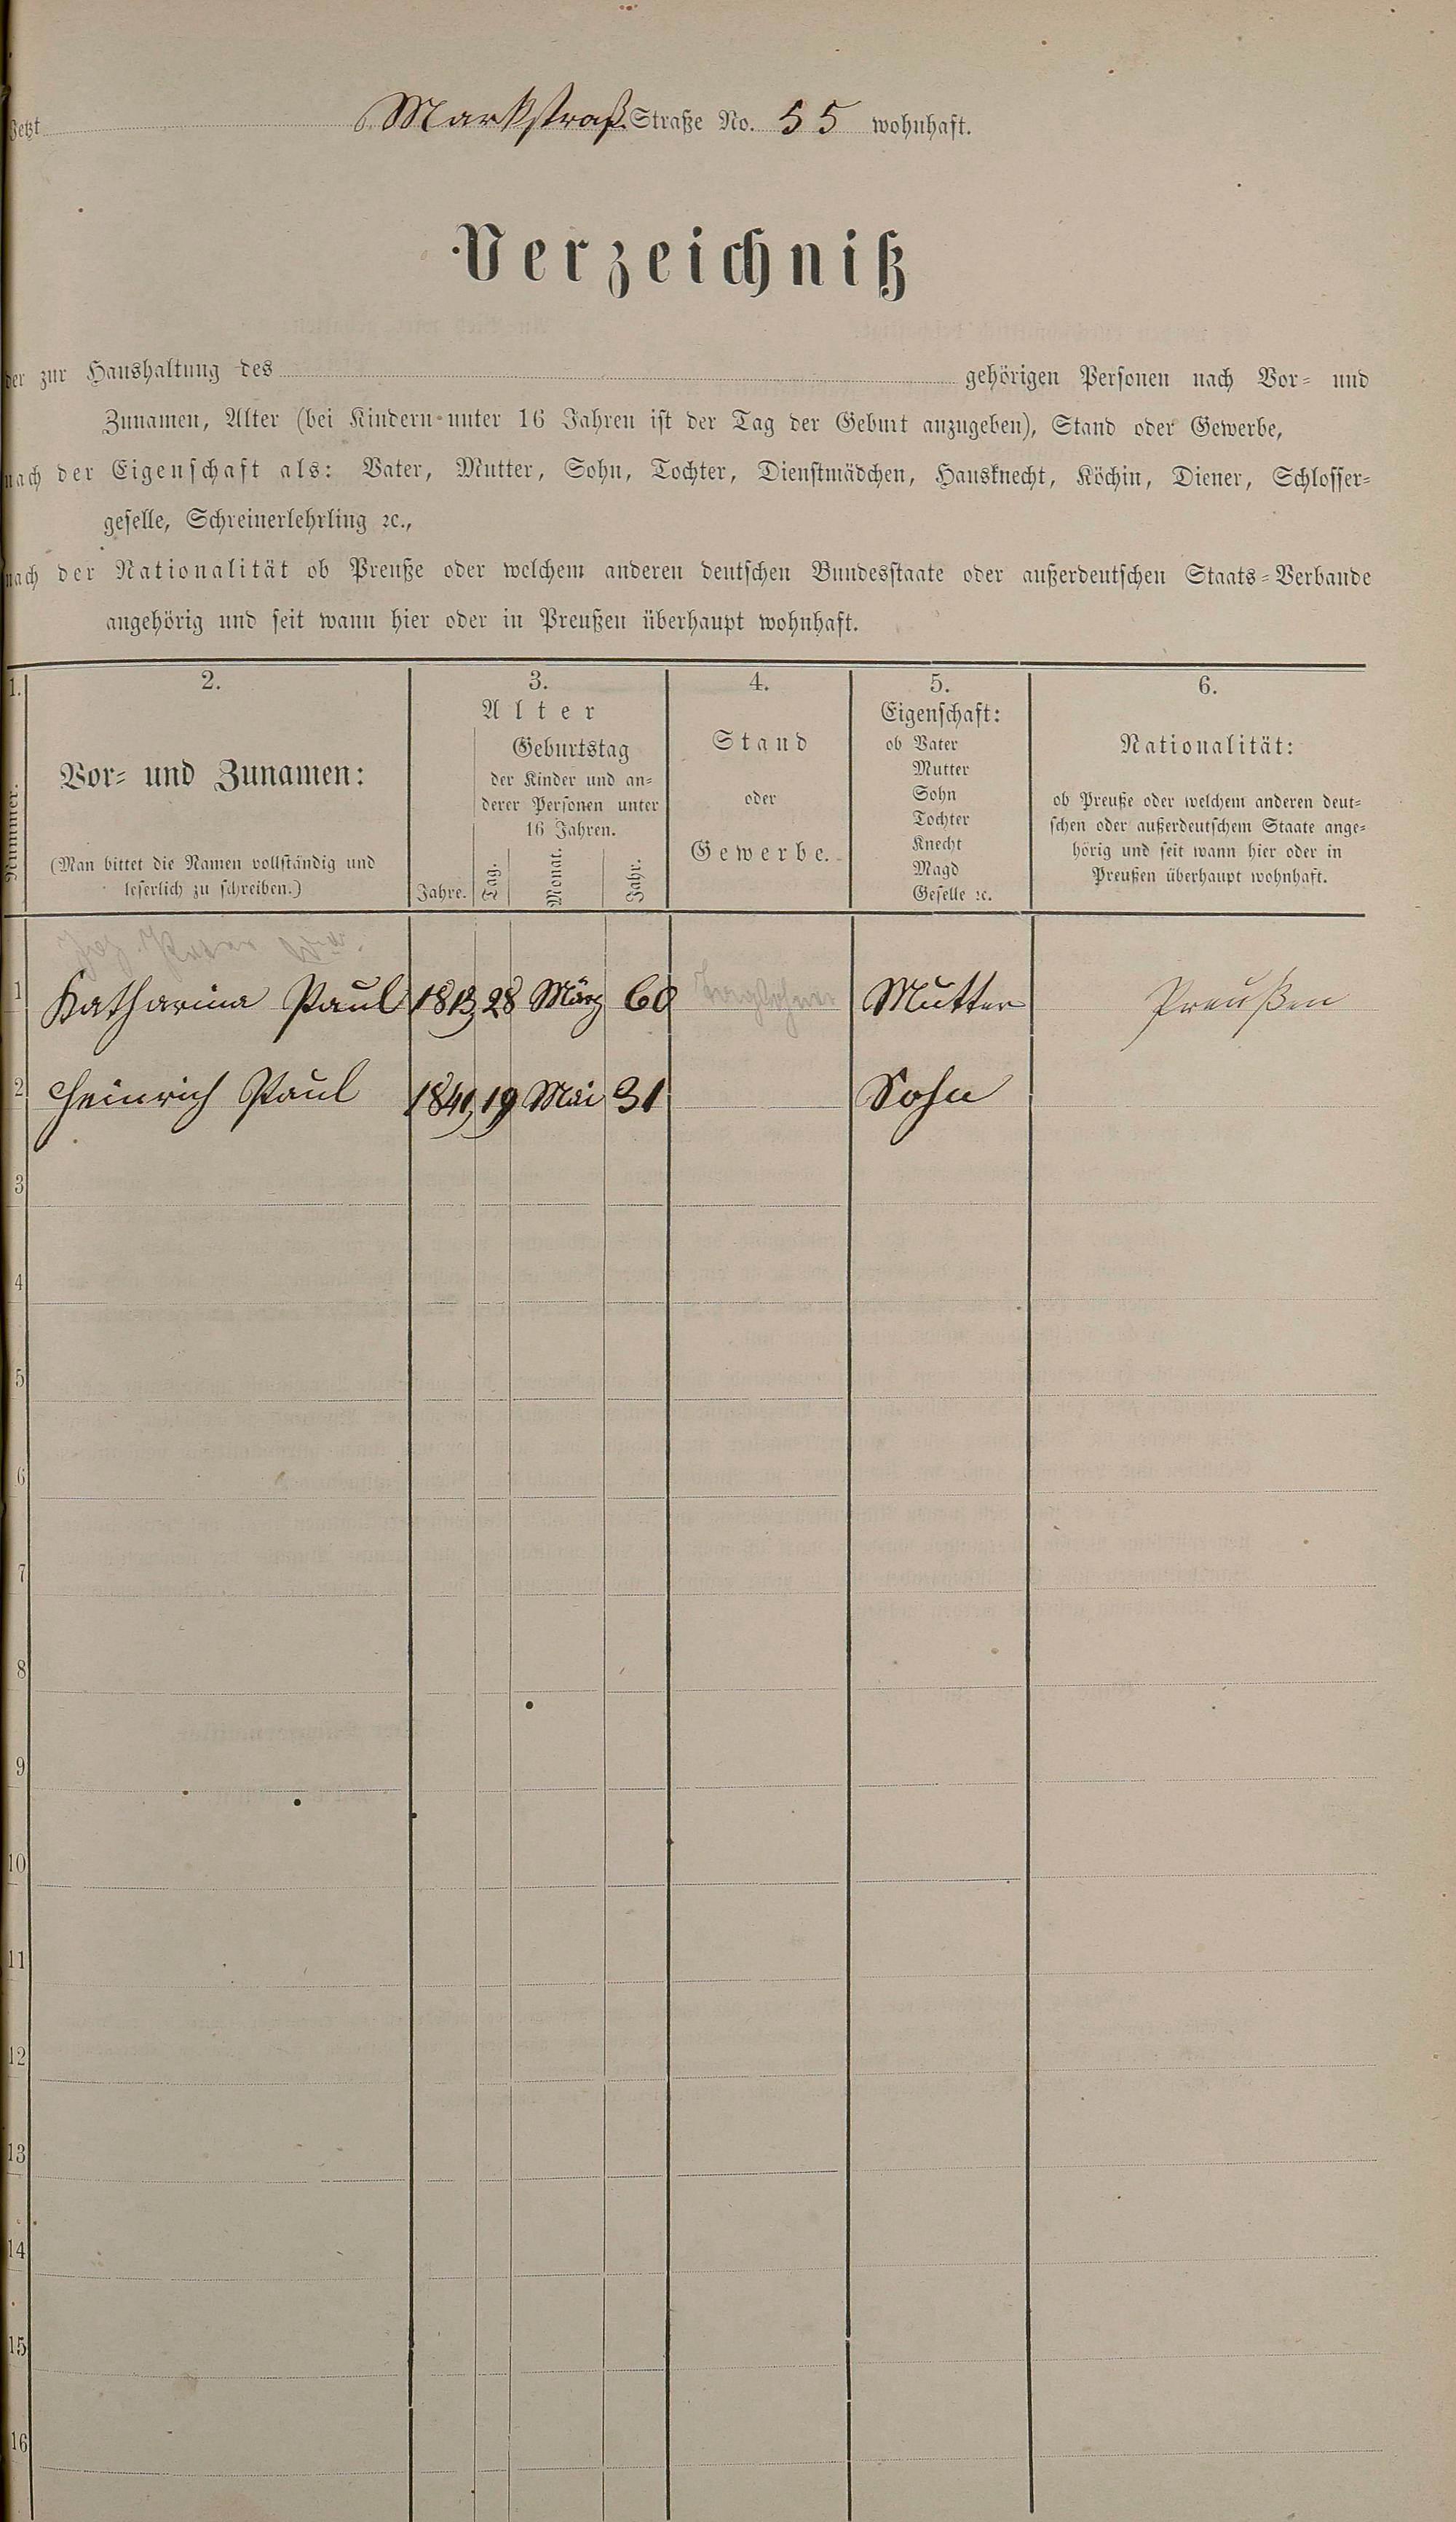 Jetzt Markstraß. Straße No. 55 wohnhaft.
Verzeichniß
der zur Haushaltung des gehörigen Personen nach Vor- und
Zunamen, Alter (bei Kindern unter 16 Jahren ist der Tag der Geburt anzugeben), Stand oder Gewerbe,
nach der Eigenschaft als: Vater, Mutter, Sohn, Tochter, Dienstmädchen, Hausknecht, Köchin, Diener, Schlosser-
geselle, Schreinerlehrling ꝛc.,
nach der Nationalität ob Preuße oder welchem anderen deutschen Bundesstaate oder außerdeutschen Staats-Verbande
angehörig und seit wann hier oder in Preußen überhaupt wohnhaft.
1.
Nummer.
2.
Vor- und Zunamen:
(Man bittet die Namen vollständig und
leserlich zu schreiben.)
3.
Alter
Jahre.
Geburtstag
der Kinder und an-
derer Personen unter
16 Jahren.
Tag.
Monat.
Jahr.
4.
Stand
oder
Gewerbe.
5.
Eigenschaft:
ob Vater
Mutter
Sohn
Tochter
Knecht
Magd
Geselle ꝛc.
6.
Nationalität:
ob Preuße oder welchem anderen deut-
schen oder außerdeutschem Staate ange-
hörig und seit wann hier oder in
Preußen überhaupt wohnhaft.
1 Katharina Paul 1813 28 März 60 Mutter Preußen
2 Heinrich Paul 1841 19 Mai 31 Sohn
3
4
5
6
7
8
9
10
11
12
13
14
15
16